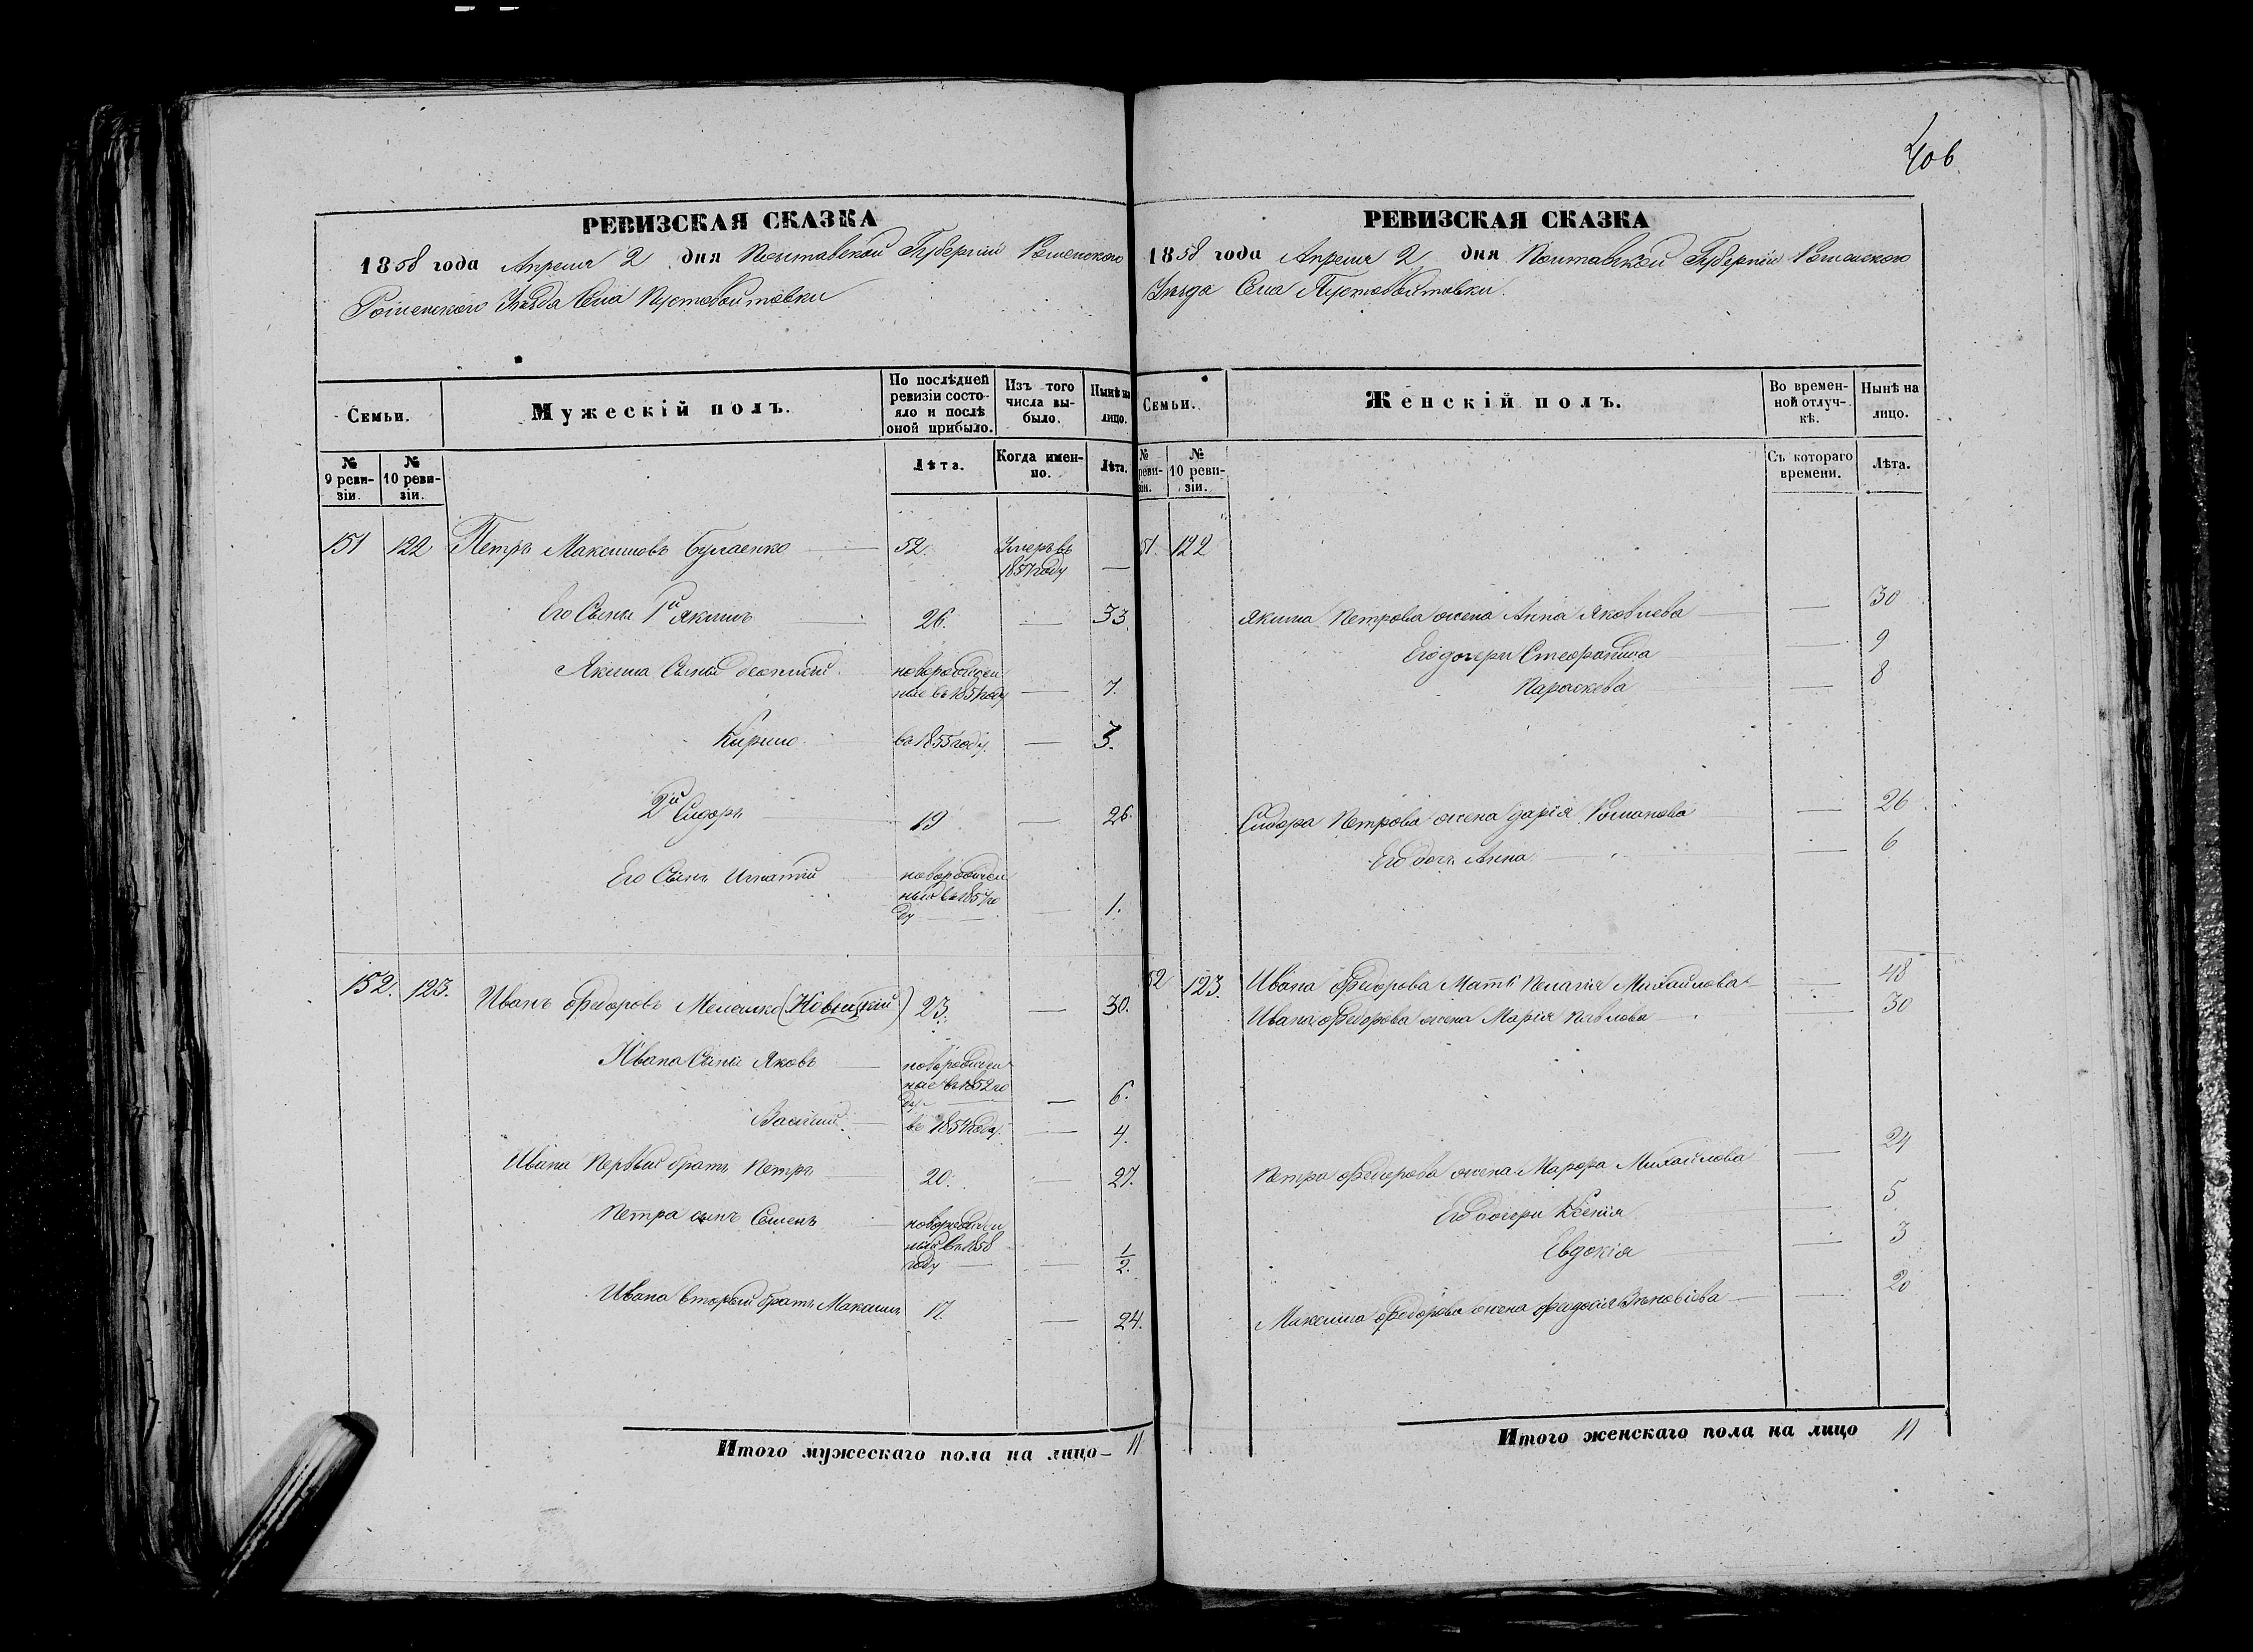 406
РЕВИЗСКАЯ СКАЗКА
1858 года Апреля 2 дня Полтавской Губерніи Роменского
Роменского Уѣзда Села Пустовойтовки
Семьи.
Мужескій полъ.
По послѣдней ревизіи состояло и послѣ оной прибыло.
Изъ того числа выбыло.
Нынѣ на лицо.
№ 9 ревизіи.
№ 10 ревизіи.
Лѣта.
Когда именно.
Лѣта.
151 122 Петръ Максимовъ 52. Умеръ въ
1857 году —
Его Сыны 1й Якимъ 26. — 33.
Якима Сыны новорожден
ные въ 1851 году — 7.
Кирило в 1855 году — 3.
2й Сидоръ 19 — 26.
Его Сынъ Игнатій новорожден
ный въ 1857 го
ду — 1.
152. 123. Иванъ Федоровъ Мелешко (Новицкій) 23. — 30.
Ивана Сыны Яковъ новорожден
ные въ 1852 го
ду — 6.
Василий в 1854 году — 4.
Ивана Первый братъ Петръ 20. — 27.
Петра сынъ Семенъ новорожден
ный въ 1858
году — 1/2.
Ивана вторый братъ Максимъ 17. — 24.
Итого мужескаго пола на лицо — 11
РЕВИЗСКАЯ СКАЗКА
1858 года Апреля 2 дня Полтавской Губерніи Роменского
Уѣзда Села Пустовойтовки.
Семьи.
Женскій полъ.
Во временной отлучкѣ.
Нынѣ на лицо.
№ реви-
зіи.
№ 10 ревизіи.
Съ котораго времени.
Лѣта.
51. 122
Якима Петрова жена Анна Яковлева — 30
Его дочери Стефанида — 9
Параскева — 8
Сидора Петрова жена Дарія Романова — 26
Его дочь Анна — 6
52 123. Ивана Федорова Мать Пелагія Михайлова — 48
Ивана Федорова жена Марія Павлова — 30
Петра Федорова жена Марфа Михайлова — 24
Его дочери Ксенія — 5
Евдокія — 3
Максима Федорова жена Федосія Зѣновіева — 20
Итого женскаго пола на лицо 11